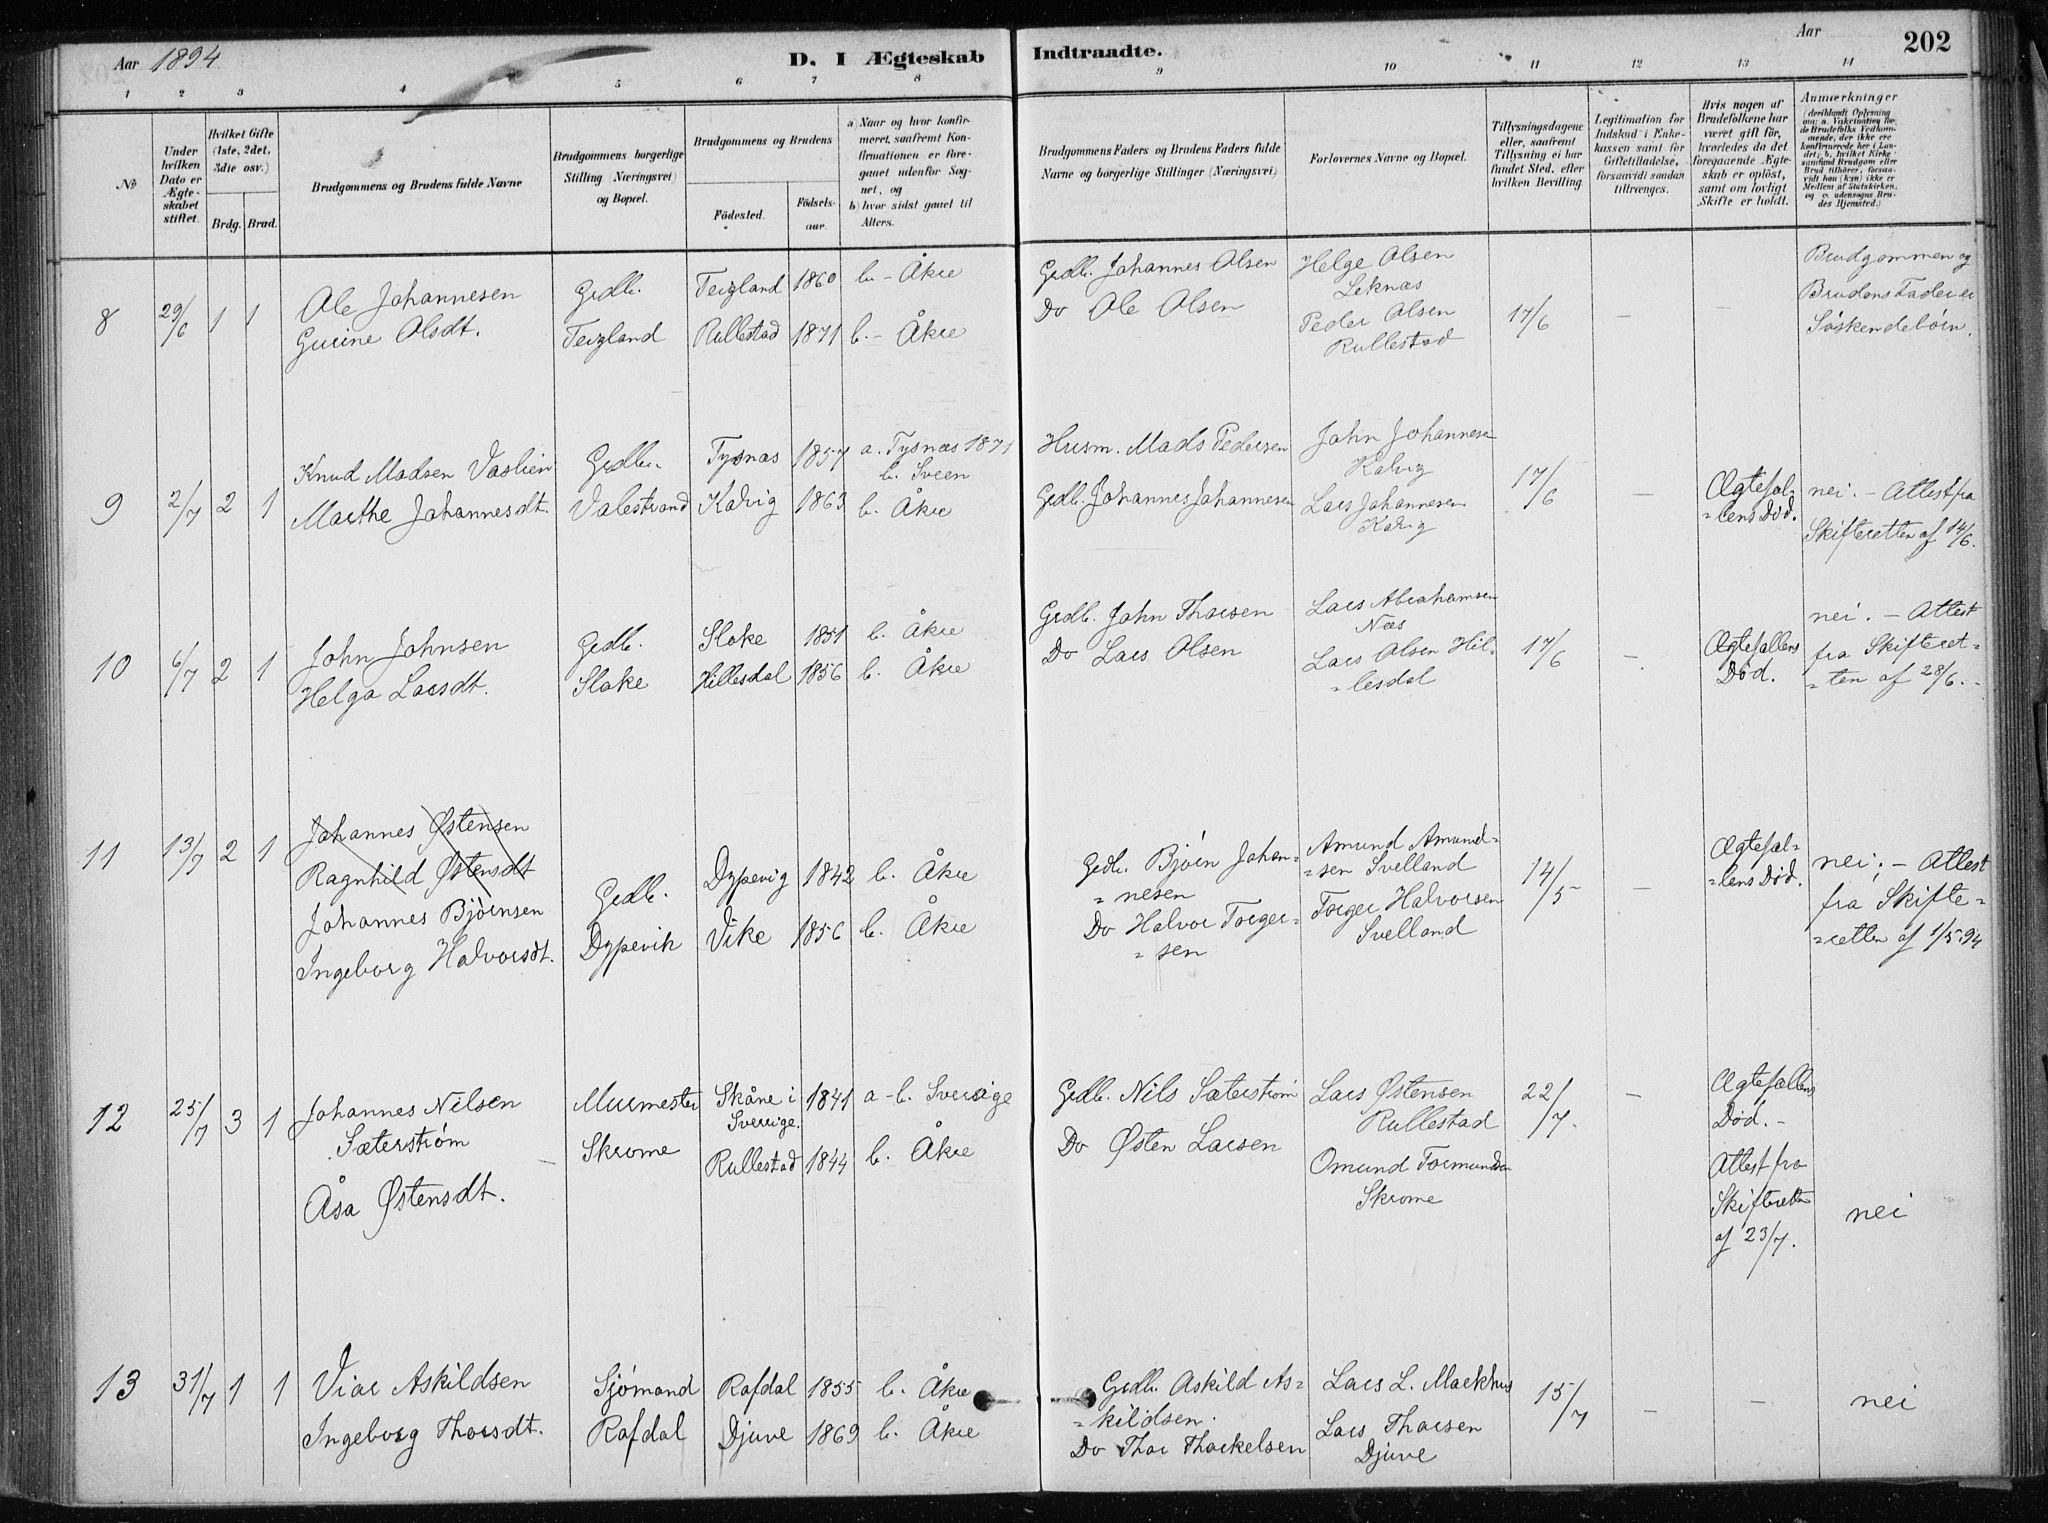 Aar 1894
D. I Ægteskab
Indtraadte.
Aar
202
1 2 3 4 5 6 7 8 9 10 11 12 13 14
No
Under hvilken Dato er Ægteskabet stiftet.
Hvilket Gifte (1ste, 2det, 3die osv.)
Brdg. Brud.
Brudgommens og Brudens fulde Navne
Brudgommens borgerlige Stilling (Næringsvei) og Bopæl.
Brudgommens og Brudens
Fødested.
Fødselsaar.
a) Naar og hvor konfirmeret, saafremt Konfirmationen er foregaaet udenfor Sognet, og
b) hvor sidst gaaet til Alters.
Brudgommens Faders og Brudens Faders fulde Navne og borgerlige Stillinger (Næringsvei)
Forlovernes Navne og Bopæl.
Tillysningsdagene eller, saafremt Tillysning ei har fundet Sted, efter hvilken Bevilling
Legitimation for Indskud i Enkekassen samt for Giftetilladelse, forsaavidt saadan tiltrænges.
Hvis nogen af Brudefolkene har været gift før, hvorledes da det foregaaende Ægteskab er opløst, samt om lovligt Skifte er holdt.
Anmærkninger
(deriblandt Oplysning om: a. Vakcination for de Brudefolks Vedkommende, der ikke ere konfirmerede her i Landet; b. hvilket Kirkesamfund Brudgom eller Brud tilhører, forsaavidt han (hun) ikke er Medlem af Statskirken, og c. udensogns Brudes Hjemsted.)
8 29/6 1 1
Ole Johannesen
Gurine Olsdt.
Grdb.
Teigland
Teigland 1860 b. - Åkre
Rullestad 1871 b. - Åkre
Grdb. Johannes Olsen
Do Ole Olsen
Helge Olsen
Leknæs
Peder Olsen
Rullestad
17/6 – –
Brudgommen og
Brudens Fader er
Søskendebørn.
9 2/7 2 1
Knud Madsen Vaslien
Marthe Johannesdt.
Grdbr.
Valestrand
Tysnæs 1857 a. Tysnæs 1871
b. Sveen
Kalvig 1863 b. Åkre
Husm. Mads Pedersen
Grdb. Johannes Johannesen
John Johannesen
Kalvig
Lars Johannesen
Kalvig
17/6 –
Ægtefæl-
-lens Død.
nei. - Attest fra
Skifteretten af 14/6.
10 6/7 2 1
John Johnsen
Helga Larsdt.
Grdb.
Sloke
Sloke 1851 b. Åkre
Hillesdal 1856 b. Åkre
Grdb. John Thorsen
Do Lars Olsen
Lars Abrahamsen
Næs
Lars Olsen Hil-
-lesdal
17/6 –
Ægtefællens
Død.
nei. - Attest
fra Skifteret-
-ten af 28/6. -
11 13/7 2 1
Johannes Østensen
Ragnhild Østensdt
Johannes Bjørnsen
Ingeborg Halvorsdt.
Grdb.
Dypevik
Dypevig 1842 b. Åkre
Vike 1856 b. Åkre
Grdb. Bjørn Johan-
= nesen
Do Halvor Torger-
= sen
Amund Amund-
=sen Svelland
Torger Halvorsen
Svelland
14/5 –
Ægtefæl-
-lens Død.
nei; - Attest
fra Skifte=
=retten af 1/5.94
12 25/7 3 1
Johannes Nilsen
Sæterstrøm
Åsa Østensdt.
Murmester
Skrome
Skåne i
Sverrige. 1841 a-b. Sverige
Rullestad 1844 b. Åkre
Grdb. Nils Sæterstrøm
Do Østen Larsen
Lars Østensen
Rullestad
Omund Tormundsen
Skrome
22/7. –
Ægtefællens
Død. -
Attest fra
Skifteretten
af 23/7.
nei
13 31/7 1 1
Viar Askildsen
Ingeborg Thorsdt.
Sjømand
Rafdal
Rafdal 1855 b. Åkre
Djuve 1869 b. Åkre
Grdb. Askild As-
= kildsen.
Do Thor Thorkelsen
Lars L. Markhus
Lars Thorsen
Djuve
15/7 – –
nei